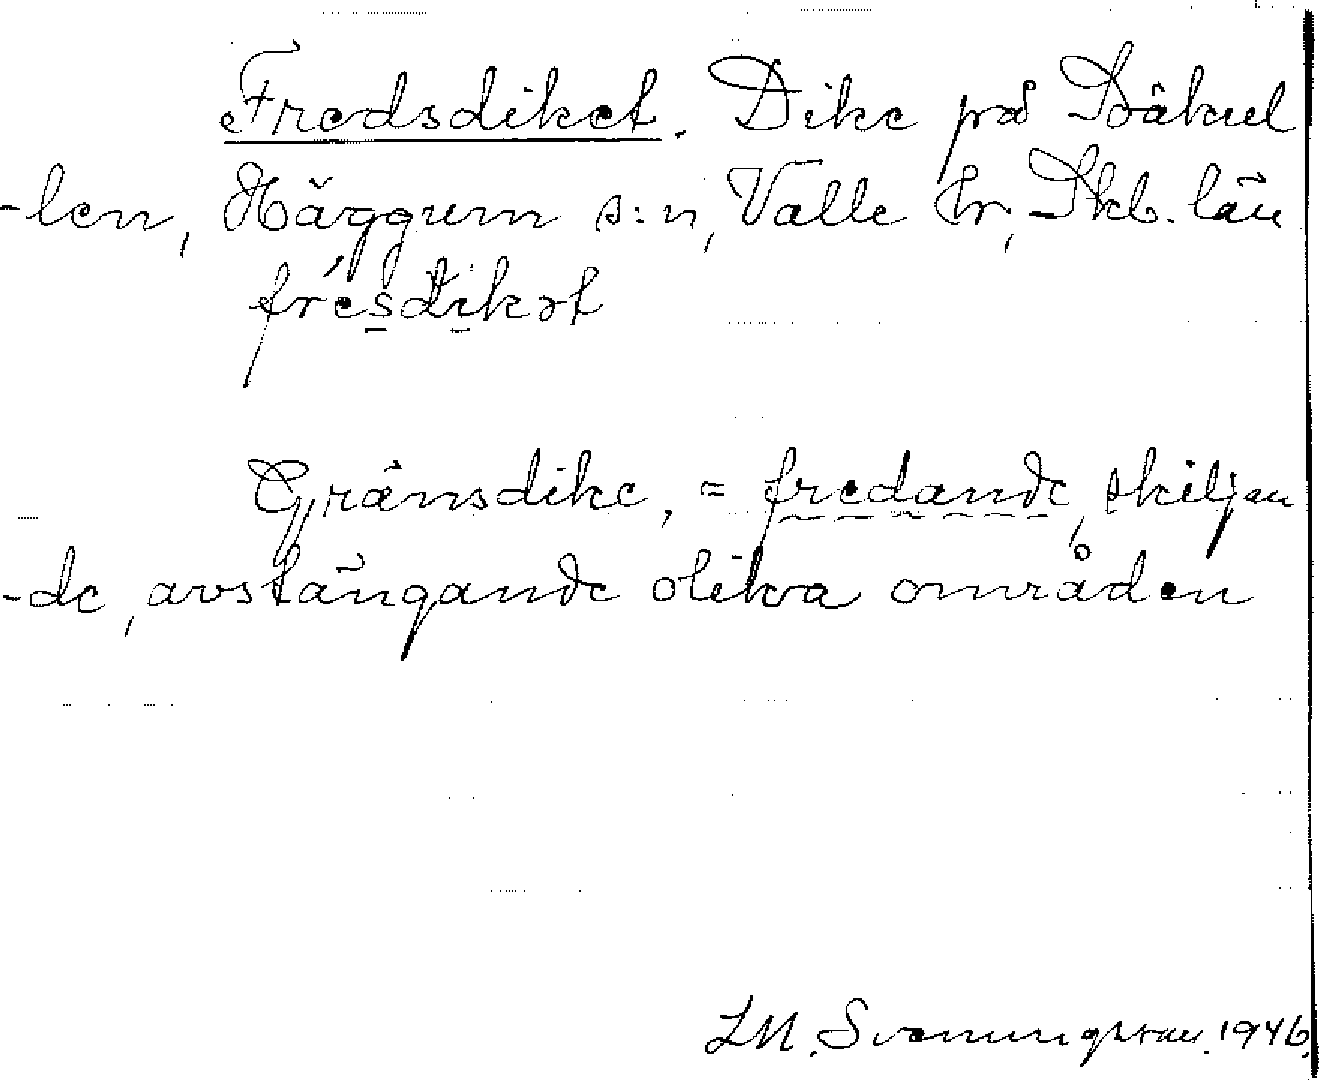 Fredsdiket. Dike på Stäkul
-len, Häggum s:n, Valle hr, Skb. län
fre´sdikət
Gränsdike, = fredande, skiljan
-de, avstängande olika områden
LM. Svenungsson. 1946.